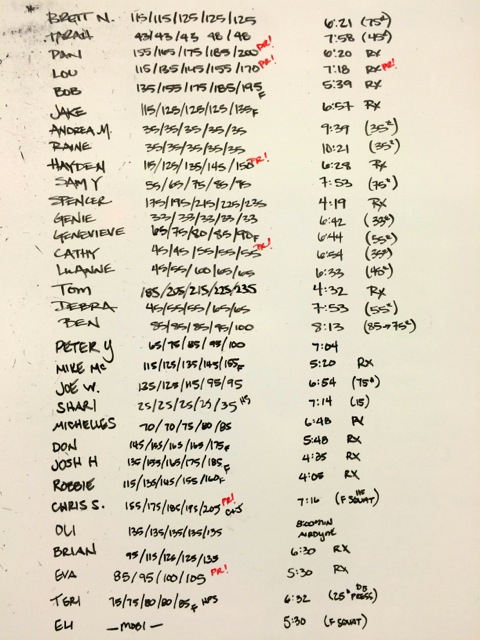 BRETT N. 115/115/125/125/125 6:21 (75#)
TARAH 43/43/43 48/48 7:58 (45#)
DAN 155/165/175/185/200 PR! 6:20 RX
LOU 115/135/145/155/170 PR! 7:18 RX PR!
BOB 135/155/175/185/195F 5:39 RX
JAKE 115/125/125/125/135F 6:57 RX
ANDREA M. 35/35/35/35/35 9:39 (35#)
RAINE 35/35/35/35/35 10:21 (35#)
HAYDEN 115/125/135/145/150 PR! 6:28 RX
SAM Y 55/65/75/85/95 7:53 (75#)
SPENCER 175/195/215/225/235 4:19 RX
GENIE 33/33/33/33/33 6:42 (33#)
GENEVIEVE 65/75/80/85/90F 6:44 (55#)
CATHY 45/45/55/55/55 PR! 6:54 (35#)
LUANNE 45/55/60/65/65 6:33 (45#)
TOM 185/205/215/225/235 4:32 RX
DEBRA 45/55/55/65/65 7:53 (55#)
BEN 85/85/85/95/100 8:13 (85→75#)
PETER Y 65/75/85/95/100 7:04
MIKE Mc 115/125/135/145/155F 5:20 RX
JOE W. 135/125/115/95/95 6:54 (75#)
SHARI 25/25/25/25/35 HS 7:14 (15)
MICHELLE S 70/70/75/80/85 6:48 RX
DON 145/155/165/165/175F 5:48 RX
JOSH H 135/155/165/175/185F 4:35 RX
ROBBIE 115/135/145/155/160F 4:05 RX
CHRIS S. 155/175/185/195/205 PR! C+J 7:16 (F SQUAT)
OLI 135/135/135/135/135 AIRDYNE
BRIAN 95/115/125/125/135 6:30 RX
EVA 85/95/100/105 PR! 5:30 RX
TERI 75/75/80/80/85F HPS 6:32 (25# DB PRESS)
ELI —MOBI— 5:30 (F SQUAT)